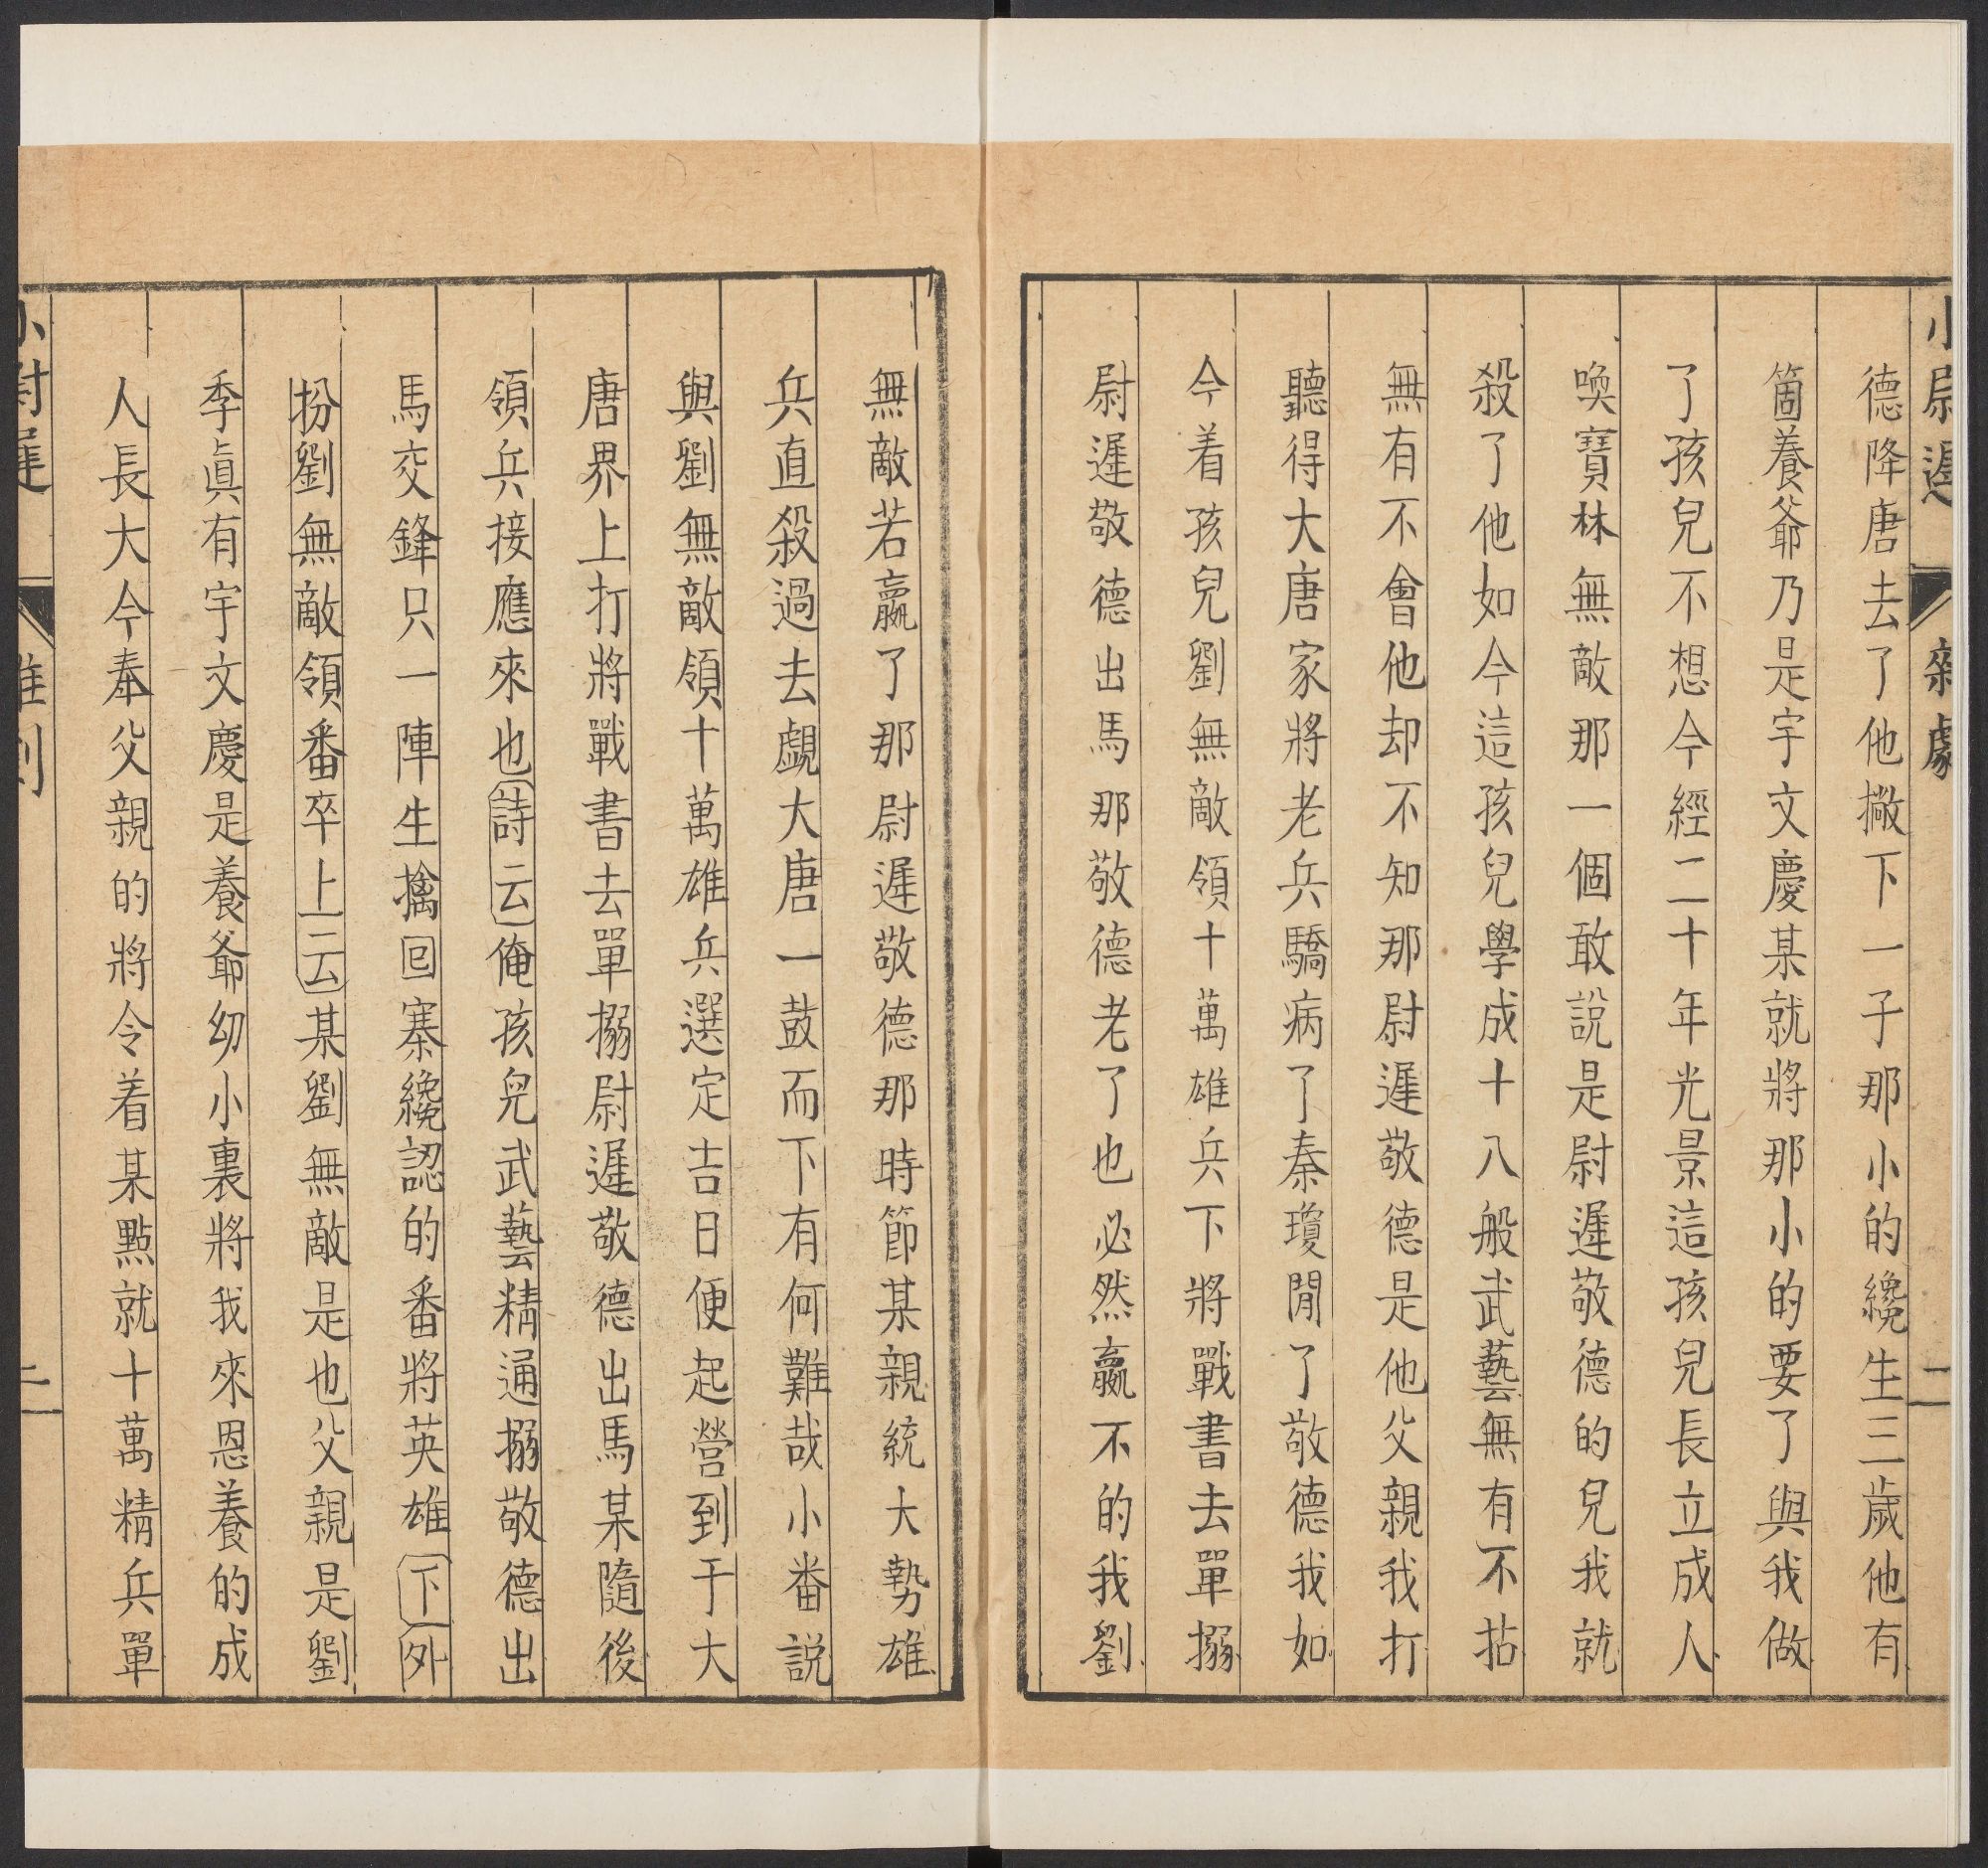 小尉遲 雜劇 二
德降唐去了他撇下一子那小的纔生三歲他有
箇養爺乃是宇文慶某就將那小的要了與我做
了孩兒不想今經二十年光景這孩兒長立成人
喚寶林無敵那一個敢說是尉遲敬德的兒我就
殺了他如今這孩兒學成十八般武藝無有不拈
無有不會他却不知那尉遲敬德是他父親我打
聽得大唐家將老兵驕病了秦瓊閒了敬德我如
今着孩兒劉無敵領十萬雄兵下將戰書去單搦
尉遲敬德出馬那敬德老了也必然贏不的我劉
無敵若贏了那尉遲敬德那時節某親統大勢雄
兵直殺過去覷大唐一鼓而下有何難哉小番説
與劉無敵領十萬雄兵選定吉日便起營到于大
唐界上打將戰書去單搦尉遲敬德出馬某隨後
領兵接應來也詩云俺孩兒武藝精通搦敬德出
馬交鋒只一陣生擒回寨纔認的番將英雄下外
扮劉無敵領番卒上云某劉無敵是也父親是劉
季眞有宇文慶是養爺幼小裏將我來恩養的成
人長大今奉父親的將令着某點就十萬精兵單
小尉遲 雜劇 二